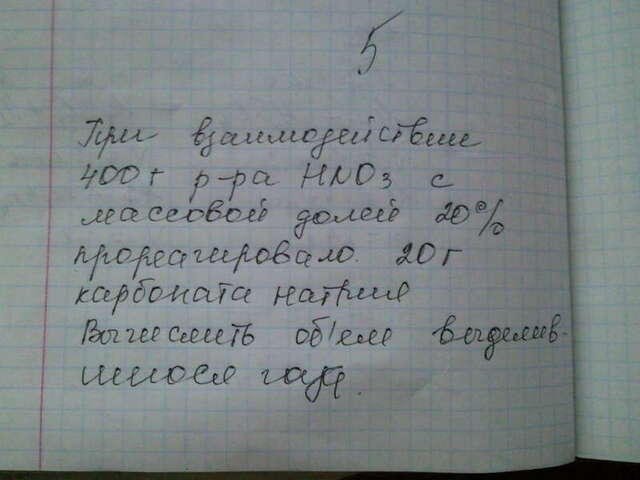 5
При взаимодействии
400 г р-ра HNO3 с
массовой долей 20%
прореагировало. 20 г
карбоната натрия
Вычислить об'ем выделив-
шиося газа.